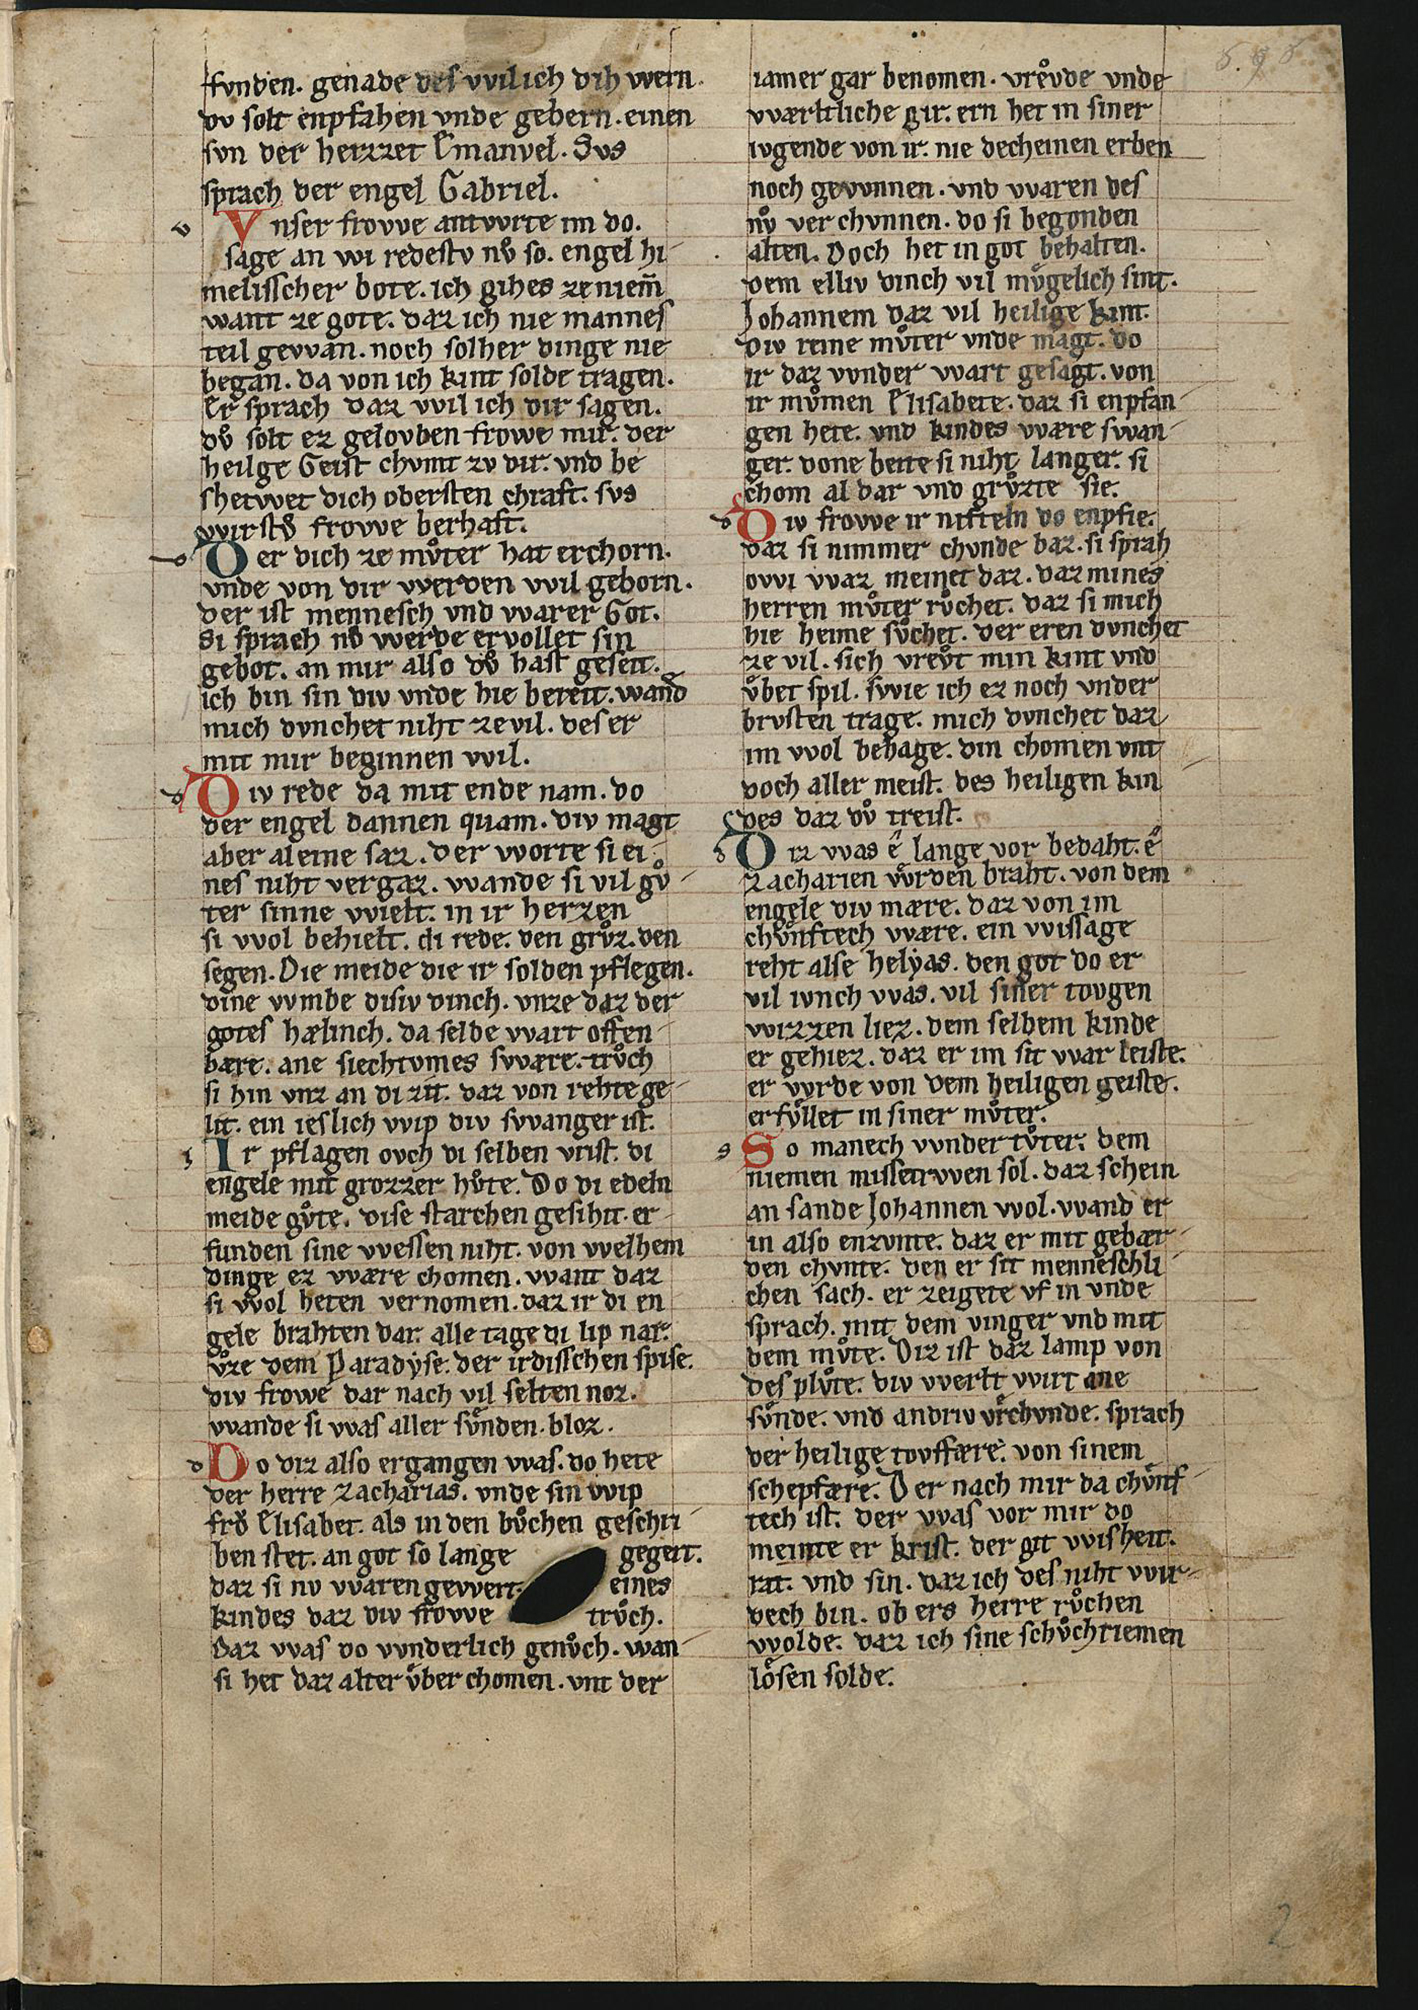 fvnden. genade des vvil ich dih wern.
dv solt enpfahen vnde gebern. einen
svn der herzzet Emanvel. Svs
sprach der engel Gabriel.
Vnser frovve antvvrte im do.
sage an wi redestv nv̊ so. engel hi-
melisscher bote. ich gihes ze niem̄
want ze gote. daz ich nie mannes
teil gevvan. noch solher dinge nie
began. da von ich kint solde tragen.
Er sprach daz vvil ich dir sagen.
dv̊ solt ez gelovben frowe mir. der
heilge Geist chvmt zv dir. vnd be
shetwet dich obersten chraft. svs
vvirstv̊ frovve berhaft.
Der dich ze mv̊ter hat erchorn.
vnde von dir vverden vvil geborn.
der ist mennesch vnd vvarer Got.
Si sprach nv̊ vverde ervollet sin
gebot. an mir also dv̊ hast geseit.
ich bin sin div vnde hie bereit. wand
mich dvnchet niht ze vil. des er
mit mir beginnen vvil.
Div rede da mit ende nam. do
der engel dannen quam. div magt
aber aleine saz. der vvorte si ei-
nes niht vergaz. vvande si vil gv̊-
ter sinne vvielt. in ir herzen
si vvol behielt. di rede. den grv̊z. den
segen. Die meide die ir solden pflegen.
dine vvmbe disiv dinch. vnze daz der
gotes hælinch. da selbe vvart offen-
bære. ane siechtvmes svvære. trv̊ch
si hin vnz an di zit. daz von rehte ge-
lit. ein ieslich vvip div svvanger ist.
Ir pflagen ovch di selben vrist. di
engele mit grozzer hv̊te. Do di edeln
meide gv̊te. dise starchen gesiht. er-
funden sine vvessen niht. von vvelhem
dinge ez vvære chomen. vvant daz
si vvol heten vernomen. daz ir di en
gele brahten dar. alle tage di lip nar.
vͦze dem Paradyse. der irdisschen spise.
div frowe dar nach vil selten noz.
vvande si vvas aller sv̊nden. bloz.
Do diz also ergangen vvas. do hete
der herre Zacharias. vnde sin vvip
frv̊ Elisabet. als in den bv̊chen geschri-
ben stet. an got so lange gegert.
daz si nv vvaren gevvert. eines
kindes daz div frovve trv̊ch.
Daz vvas do vvnderlich genv̊ch. wan-
si het daz alter v̊ber chomen. vnt der
iamer gar benomen. vrev̊de vnde
vværltliche gir. ern het in siner
ivgende von ir. nie decheinen erben
noch gevvnnen. vnd vvaren des
nv̊ ver chvnnen. do si begonden
alten. Doch het in got behalten.
dem elliv dinch vil mv̊gelich sint.
Johannem daz vil heilige kint.
Div reine mv̊ter vnde magt. do
ir daz vvnder vvart gesagt. von
ir mv̊men Elisabete. daz si enpfan-
gen hete. vnd kindes vvære svvan-
ger. done beite si niht langer. si
chom al dar vnd grv̊zte sie.
Div frovve ir nifteln do enpfie.
daz si nimmer chvnde baz. si sprah
ovvi vvaz meinet daz. daz mines
herren mv̊ter rv̊chet. daz si mich
hie heime sv̊chet. der eren dvnchet
ze vil. sich vrev̊t min kint vnd
v̊bet spil. svvie ich ez noch vnder
brvsten trage. mich dvnchet daz
im vvol behage. din chomen vnt
doch aller meist. des heiligen kin
des daz dv̊ treist.
Diz vvas e lange vor bedaht. e
Zacharien vv̊rden braht. von dem
engele div mære. daz von im
chv̊nftech vvære. ein vvissage
reht alse helyas. den got do er
vil ivnch vvas. vil siner tovgen
vvizzen liez. dem selbem kinde
er gehiez. daz er im sit vvar leiste.
er vvrde von dem heiligen geiste.
erfv̊llet in siner mv̊ter.
So manech vvnder tv̊ter. dem
niemen missetrvven sol. daz schein
an sande Johannen vvol. vvand er
in also enzvnte. daz er mit gebær-
den chvnte. den er sit menneschli
chen sach. er zeigete vf in vnde
sprach. mit dem vinger vnd mit
dem mv̊te. Diz ist daz lamp von
des plv̊te. div vverlt vvirt ane
sv̊nde. vnd andriv vrchvnde. sprach
der heilige tovffære. von sinem
schepfære. Der nach mir da chv̊nf-
tech ist. der vvas vor mir do
meinte er krist. der git vvisheit.
rat. vnd sin. daz ich des niht vvir-
dech bin. ob ers herre rv̊chen
vvolde. daz ich sine schv̊chriemen
lo̊sen solde.
2